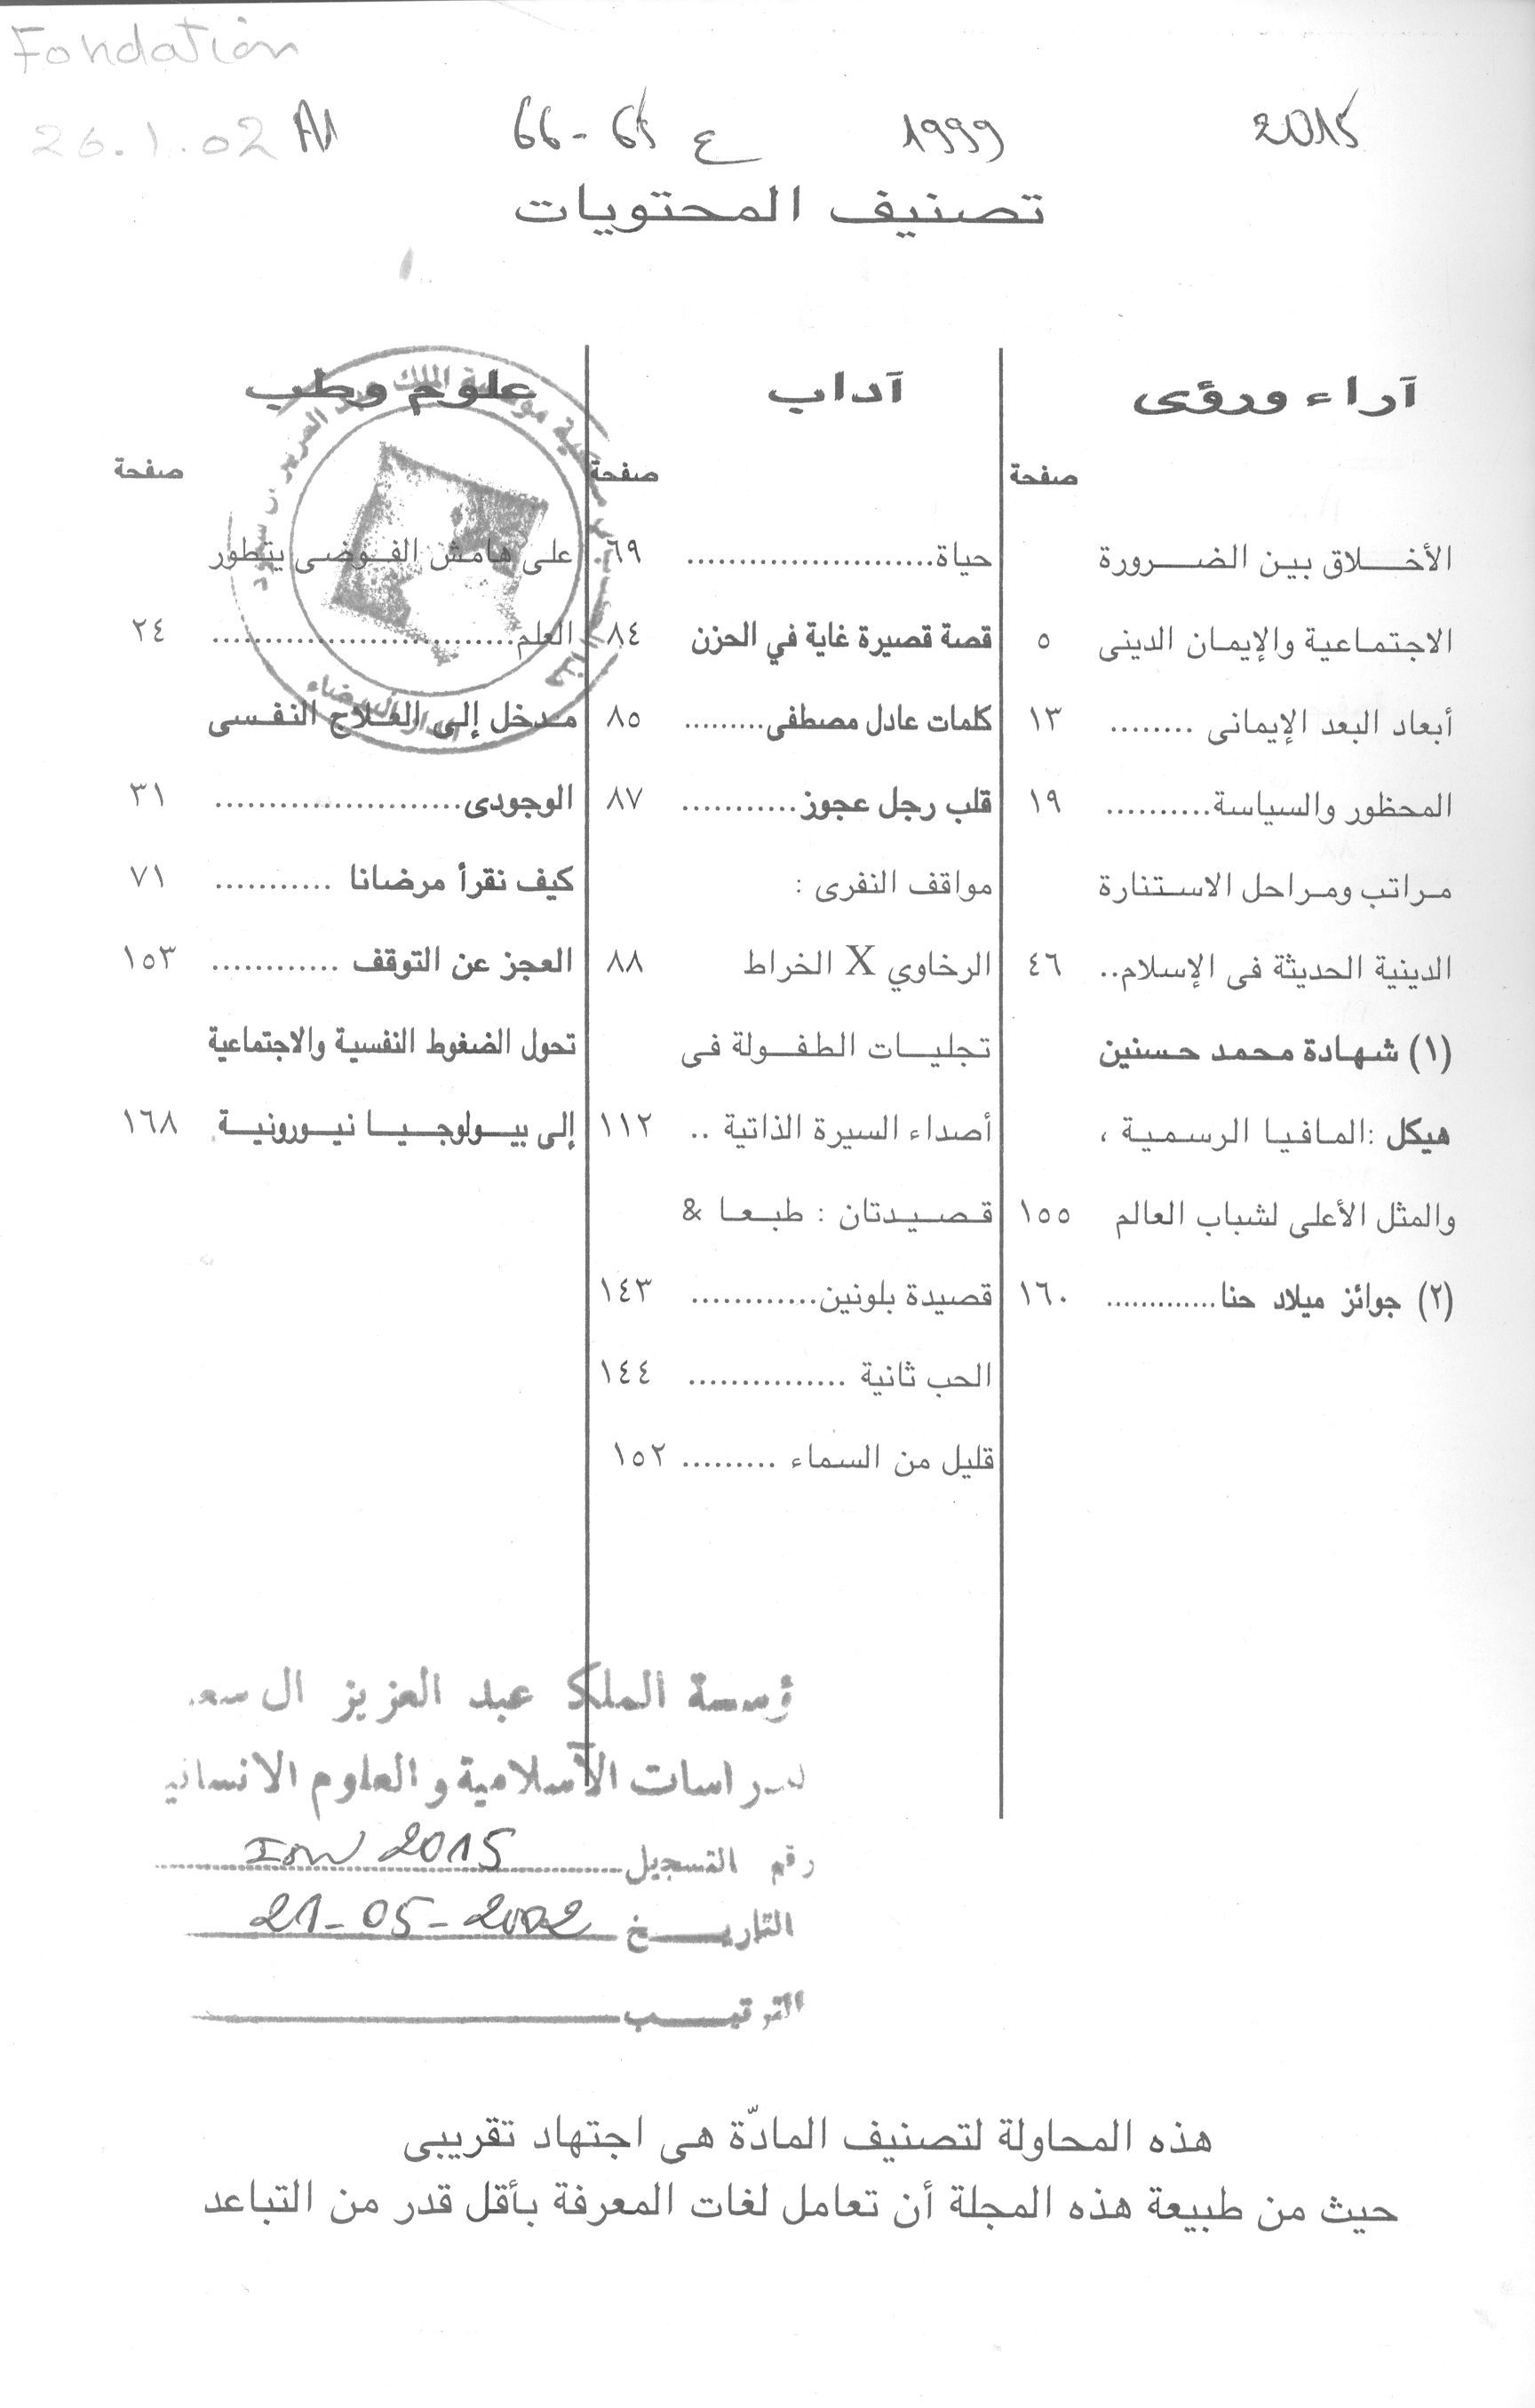 Fondation
26.1.02 A1
2015 1999 ع 65-66
تصنيف المحتويات
آراء ورؤى
صفحة
الأخلاق بين الضرورة
الاجتماعية والإيمان الدينى ٥
أبعاد البعد الإيمانى ........ ١٣
المحظور والسياسة.......... ١٩
مراتب ومراحل الاستنارة
الدينية الحديثة فى الإسلام.. ٤٦
(١) شهادة محمد حسنين
هيكل :المافيا الرسمية ،
والمثل الأعلى لشباب العالم ١٥٥
(٢) جوائز ميلاد حنا............. ١٦٠
آداب
صفحة
حياة........................ ٦٩
قصة قصيرة غاية في الحزن ٨٤
كلمات عادل مصطفى.......... ٨٥
قلب رجل عجوز........... ٨٧
مواقف النفرى :
الرخاوي X الخراط ٨٨
تجليات الطفولة فى
أصداء السيرة الذاتية .. ١١٢
قصيدتان : طبعا &
قصيدة بلونين............ ١٤٣
الحب ثانية ............... ١٤٤
قليل من السماء ......... ١٥٢
علوم وطب
صفحة
على هامش الفوضى يتطور
العلم............................. ٢٤
مدخل إلى العلاج النفسى
الوجودى........................ ٣١
كيف نقرأ مرضانا ........... ٧١
العجز عن التوقف ............ ١٥٣
تحول الضغوط النفسية والاجتماعية
إلى بيولوجيا نيورونية ١٦٨
ؤسسة الملك عبد العزيز ال سع
دراسات الاسلامية والعلوم الانساني
رقم التسجيل 2015
التاريخ 21-05-2002
الترتيب
هذه المحاولة لتصنيف المادّة هى اجتهاد تقريبى
حيث من طبيعة هذه المجلة أن تعامل لغات المعرفة بأقل قدر من التباعد